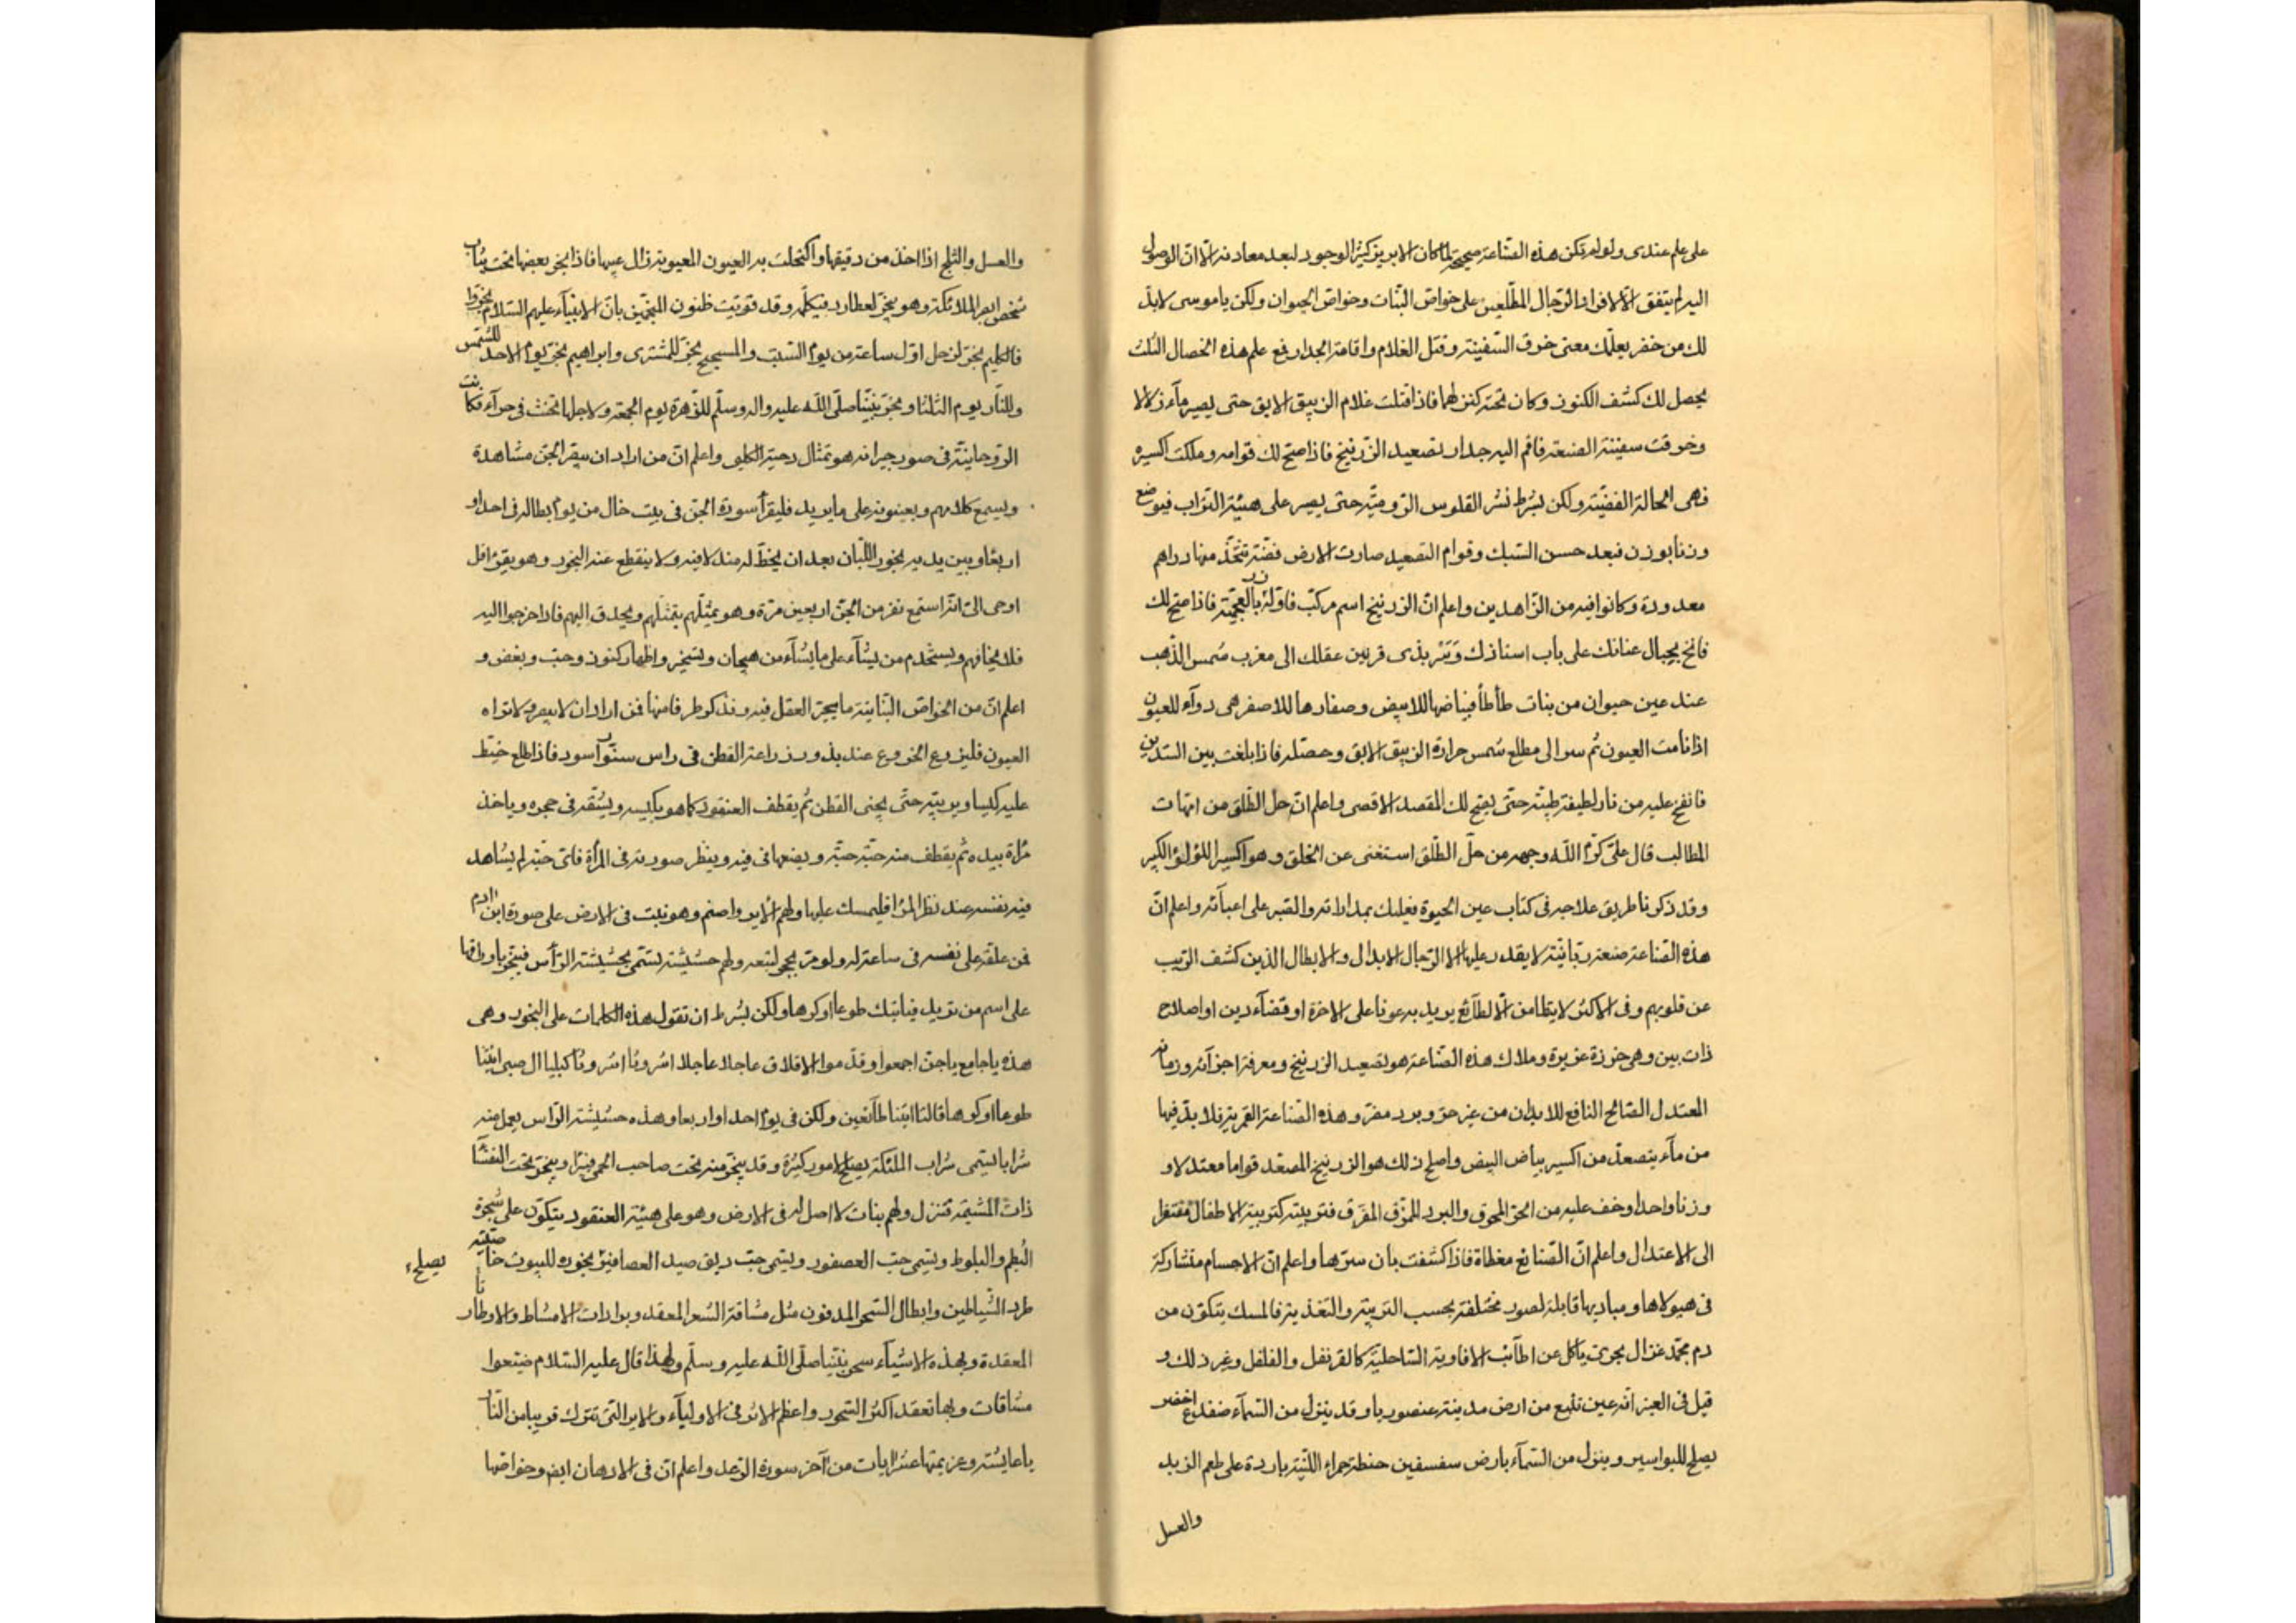 على علم عندى ولو لم تكن هذه الصناعة صحيحة لما كان الابريز كثير الوجود لبعد معادنه الا ان الوصول
اليه لم يتفق الا لافراد الرجال المطلعين على خواص النبات وخواص الحيوان ولكن ياموسى لابد
لك من خضر يعلمك معنى خرق السفينة وقتل الغلام واقامة الجدار فمع علم هذه الخصال الثلث
يحصل لك كشف الكنوز وكان تحته كنز لهما فاذا قتلت غلام الزيبق الابق حتى يصير مآء زلالا
وخرقت سفينة الصنعة فاقم اليه جدار تصعيد الزرنيخ فاذا صح لك قوامه وملكت اكسيره
فهى الحالة الفضية ولكن بشرط نشر الفلوس الرومية حتى يصير على هيئة التراب فيوضع
وزنا بوزن فبعد حسن السبك وقوام التصعيد صارت الارض فضة تتخذ منها دراهم
معدودة وكانوا فيه من الزاهدين واعلم ان الزرنيخ اسم مركب فاوله زر بالعجمية فاذا صح لك
فانخ بحبال عنانك على باب استاذك وسر بذى قرنين عقلك الى مغرب شمس الذهب
عند عين حيوان من بنات طأطأ فبياضها للابيض وصفارها للاصفر هى دوآء للعيون
اذا نامت العيون ثم سر الى مطلع شمس حرارة الزيبق الابق وحصله فاذا بلغت بين السدين
فانفخ عليه من نار لطيفة طيبة حتى يفتح لك المقصد الاقصى واعلم ان حل الطلق من امهات
المطالب قال على كرم الله وجهه من حل الطلق استغنى عن الخلق وهو اكسير اللؤلؤ الكبير
وقد ذكرنا طريق علاجه فى كتاب عين الحيوة فعليك بمداراته والصبر على اعبآئه واعلم ان
هذه الصناعة صنعة ربانية لا يقدر عليها الا الرجال الابدال والابطال الذين كشف الريب
عن قلوبهم وفى الاكثر لا ينالها من الا لطآئع يريد به عونا على الاخرة او قضآء دين او اصلاح
ذات بين وهى خرزة عزيزة وملاك هذه الصناعة هو تصعيد الزرنيخ ومعرفة اجزآئه وزمانه
المعتدل الصالح النافع للابدان من غير حر وبرد مضر وهذه الصناعة القمرية فلا بد فيها
من مآء يتصعد من اكسير بياض البيض واصلح ذلك هو الزرنيخ المصعد قواما معتدلا و
وزنا واحدا وخف عليه من الحر المحرق والبرد الممزق المفرق فتربيته كتربية الاطفال مفتقرا
الى الاعتدال واعلم ان الصنائع مغطاة فاذا كشفت بان سرها واعلم ان الاجسام متشاركة
فى هيولاها ومباديها قابلة لصور مختلفة بحسب التربية والتغذية فالمسك يتكون من
دم محمد غزال بحرى ياكل عن اطآئب الافاوية الساحلية كالقرنفل والفلفل وغير ذلك و
قيل فى العنبر انه عين تنبع من ارض مدينة عنصوريا وقد ينزل من السمآء ضفدع اخضر
يصلح للبواسير وينزل من السمآء بارض سفسفين حنطة حمراء اللينة باردة على طعم الزبد
والعسل
والعسل والثلج اذا اخذ من دقيقها واكتحلت به العيون المعيوبة زال عيبها فاذا بخر بعضها تحت ثياب
شخص ابصر الملائكة وهو يبخر لعطارد فيكلمه وقد قويت ظنون المنجمين بان الانبياء عليهم السلام بخروا
فالكليم بخر لزحل اول ساعة من يوم السبت والمسيح بخر للمشترى وابراهيم بخر يوم الاحد للشمس
وللنار يوم الثلثا وبخر نبينا صلى الله عليه واله وسلم للزهرة يوم الجمعة ولاجلها تحنث فى حرآء فكانت
الروحانية فى صور جبرانه هو تمثال دحية الكلبى واعلم ان من اراد ان يبصر الجن مشاهدة
ويسمع كلامهم ويعينونه على مايريد فليقرأ سورة الجن فى بيت خال من يوم بطالة فى احد او
اربعا وبين يديه بخور اللبان بعد ان يخط له مندلا فيه ولا ينقطع عنه البخور وهو يقرأ قل
اوحى الى انه استمع نفر من الجن اربعين مرة وهو يمثلهم بتمثلهم ويحدق اليهم فاذا خرجوا اليه
فلا يخافهم ويستخدم من يشآء على ما يشآء من هيجان وتسخير واظهار كنوز وحب وبغض و
اعلم ان من الخواص النباتية ما يحير العقل فيه ونذكر طرفا منها فمن اراد ان لا يبصر ولا تراه
العيون فليزرع الخروع عند بذور زراعة القطن فى راس سنور اسود فاذا طلع خيط
عليه كيسا ويربيه حتى يجنى القطن ثم يقطف العنقود كما هو بكيسه ويستقر فى حجره وياخذ
مرآة بيده ثم يقطف منه حبة حبة ويضعها فى فيه وينظر صورته فى المرآة فاى حبة لم يشاهد
فيه نفسه عند نظر المرآة فليمسك عليها ولهم الابرواصنم وهو نبت فى الارض على صورة ابن ادم
فمن علقه على نفسه فى ساعة له ولو مر بحجر لتبعه ولهم حشيشة تسمى بحشيشة الرأس فيبخر باوراقها
على اسم من تريد فياتيك طوعا او كرها ولكن بشرط ان تقول هذه الكلمات على البخور وهى
هذه ياجامع ياجن اجمعوا وقدموا الافلاق عاجلا عاجلا اشروثا اشروثا كبليا ال صبى ائتيا
طوعا او كرها قالتا اتينا طآئعين ولكن فى يوم احد او اربعا وهذه حشيشة الراس يعمل منه
شرابا يسمى شراب الملئكة يصلح لامور كثيرة وقد يبخر منه تحت صاحب الحمى فيبرا ويبخر تحت النفسآ
ذات المشيمة فتنزل ولهم بنات لا اصل له فى الارض وهو على هيئة العنقود يتكون على شجرة
البطم والبلوط ويسمى حب العصفور ويسمى حب دبق صيد العصافير بخوره للبيوت خاصيته يصلح
طرد الشياطين وابطال السحر المدفون مثل مشاقة الشعر المعقد وبرادات الامشاط والاوتار
المعقدة وبهذه الاشيآء سحر نبينا صلى الله عليه وسلم ولهذا قال عليه السلام ضيعوا
مشاقات وبها تعقد اكثر السحور واعظم الاثر فى الاوليآء والابر التى تترك قريبا من النار
ياعايشة وعزيمتها عشر ايات من آخر سورة الرعد واعلم ان فى الادهان ايض وخواصها